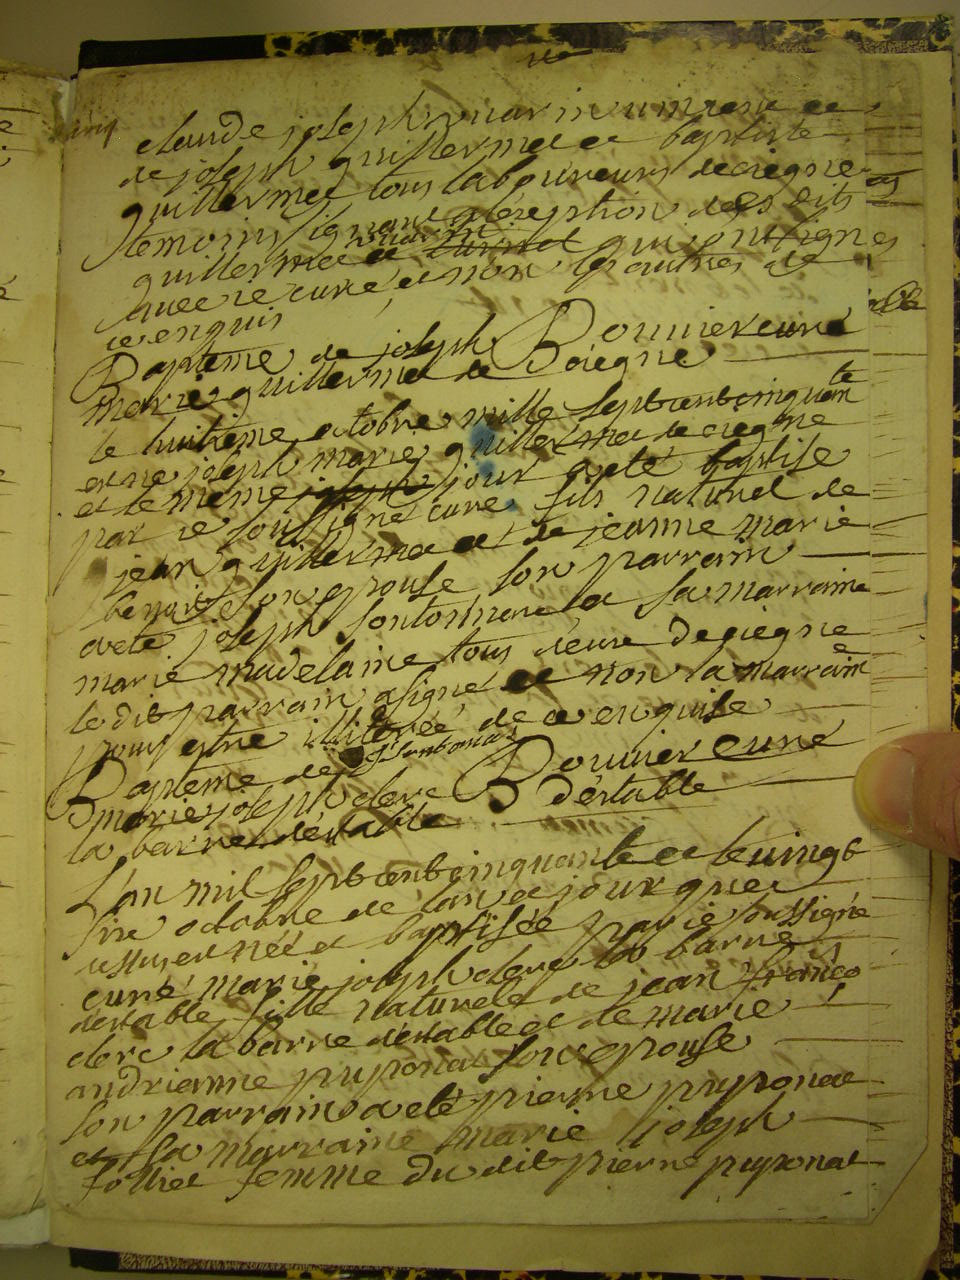 claude joseph marin
de joseph guillermet et baptiste
guillermet tous laboureurs de ciegne
temoins signant a lexeption des dits
guillermet et marin qui ont signes
avec ie curé et non les autres de
ce enquis
Bapteme de joseph Bouvier curé
marie guillermet de Sciegne
le huitieme octobre mille septcentcinquante
est né joseph marie guillermet de ciegne
et le meme jour a eté baptisé
par ie soussigné curé fils naturel de
jean guillermet et de jeanne marie
son epouse son parrain
a eté joseph et sa marraine
marie madelaine tous deux de ciegne
le dit parrain a signé et non la marraine
pour estre illiterée de ce enquise
Bapteme de Bouvier curé
marie joseph clerc d'estable
la barre d'estable
L'an mil septcentcinquante et le vingt
octobre de l'an et jour que
dessus est née et baptisée par ie soussigné
curé marie joseph clerc la barre
d'estable fille naturele de jean françois
clerc la barre d'estable et de marie
andrianne puponat son epouse
son parrain a eté pierre puponat
et sa marraine marie joseph
folliet femme du dit pierre puponat